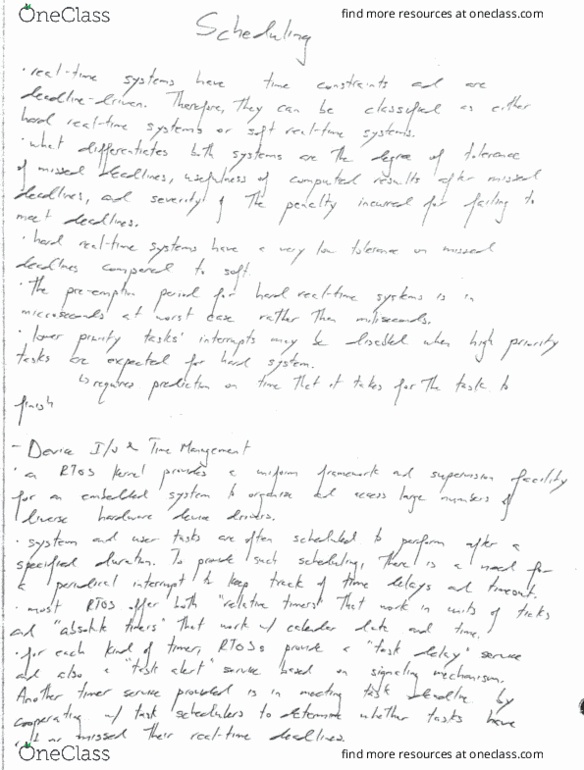 OneClass
find more resources at oneclass.com
Scheduling
· real-time systems have time constraints ad are
deadline-driven. Therefore, they can be classified as either
hard real-time systems or soft real-time systems.
· what differentiates both systems are the degree of tolerance
of missed deadlines, usefulness of computed results after missed
deadlines, and severity of the penalty incurred for failing to
meet deadlines.
· hard real-time systems have a very low tolerance on missed
deadlines compared to soft.
· The pre-emption period for hard real-time systems is in
microseconds at worst case rather than miliseconds.
· lower priority tasks' interrupts may be disabled when high priority
tasks are expected for hard system.
↳ requires prediction on time that it takes for the task to
finish
- Device I/O & Time Management
· an RTOS kernel provides a uniform framework and supervision facility
for an embedded system to organize and access large numbers of
diverse hardware device drivers.
· system and user tasks are often scheduled to perform after a
specified duration. To provide such scheduling, there is a need for
a periodical interrupt to keep track of time delays and timeout.
· most RTOS offer both "relative timers" that work in units of ticks
ad "absolute timers" that work w/ calendar date and time.
· for each kind of timer, RTOSs provide a "task delay" service
ad also a "task alert" service based on signaling mechanism.
Another timer service provided is in meeting task deadline by
cooperating w/ task schedulers to determine whether tasks have
or missed their real-time deadlines.
OneClass
find more resources at oneclass.com